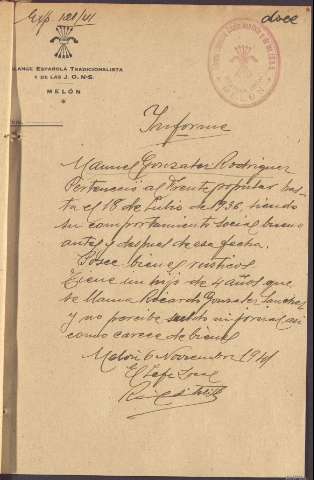 Exp. 128/41
doce
FALANGE ESPAÑOLA TRADICIONALISTA
Y DE LAS J. O. N-S.
MELÓN
Informe
Manuel Gonzalez Rodriguez
Pertenecio al Frente popular has-
ta el 18 de Julio de 1936, siendo
su comportamiento social bueno
antes y despues de esa fecha.
Posee bienes rusticos
Tiene un hijo de 4 años que
se llama Ricardo Gonzalez Sanchez
y no percibe sueldo ni jornal, asi
como carece de bienes
Melón 6 Noviembre 1941
El Jefe Local